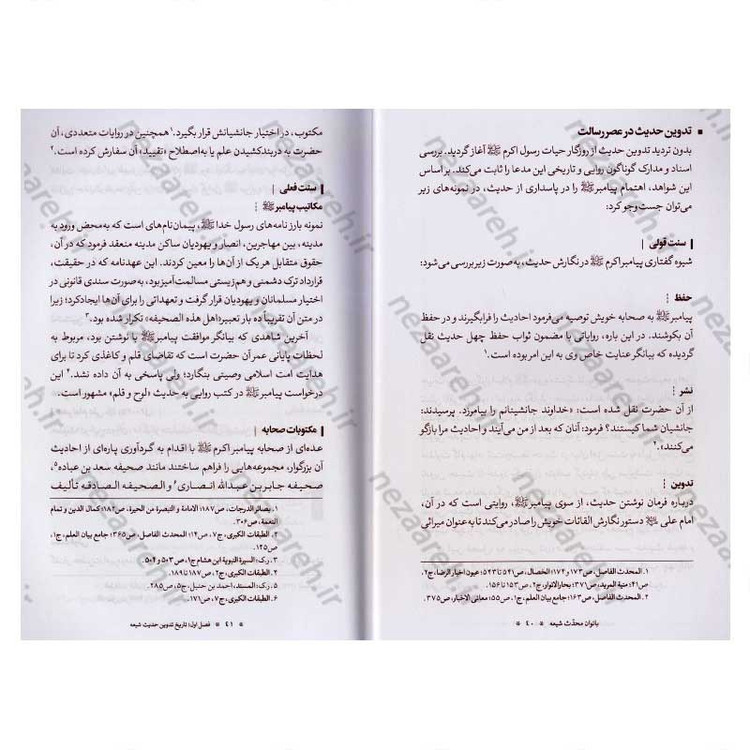 تدوین حدیث در عصر رسالت
بدون تردید تدوین حدیث از روزگار حیات رسول اکرم ﷺ آغاز گردید. بررسی
اسناد و مدارک گوناگون روایی و تاریخی این مدعا را ثابت می‌کند. بر اساس
این شواهد، اهتمام پیامبر ﷺ را در پاسداری از حدیث، در نمونه‌های زیر
می‌توان جست‌وجو کرد:
سنت قولی
شیوه گفتاری پیامبر اکرم ﷺ در نگارش حدیث، به صورت زیر بررسی می‌شود:
حفظ
پیامبر ﷺ به صحابه خویش توصیه می‌فرمود احادیث را فراگیرند و در حفظ
آن بکوشند. در این باره، روایاتی با مضمون ثواب حفظ چهل حدیث نقل
گردیده که بیانگر عنایت خاص وی به این امر بوده است.۱
نشر
از آن حضرت نقل شده است: «خداوند جانشینانم را بیامرزد. پرسیدند:
جانشیان شما کیستند؟ فرمود: آنان که بعد از من می‌آیند و احادیث مرا بازگو
می‌کنند».۲
تدوین
درباره فرمان نوشتن حدیث، از سوی پیامبر ﷺ، روایتی است که در آن،
امام علی دستور نگارش القائات خویش را صادر می‌کند تا به عنوان میراثی
1. المحدث الفاصل، ص۱۷۳ و ۱۷۴؛ الخصال، ص۵۴۱ تا ۵۴۳؛ عیون اخبار الرضا، ج۲،
ص۴۱؛ منیة المرید، ص۳۷۱؛ بحارالانوار، ج۲، ص۱۵۳ تا ۱۵۶.
2. المحدث الفاصل، ص۱۶۳؛ جامع بیان العلم، ج۱، ص۵۵؛ معانی الاخبار، ص۳۷۵.
بانوان محدّث شیعه * ۴۰ *
مکتوب، در اختیار جانشیانش قرار بگیرد.۱ همچنین در روایات متعددی، آن
حضرت به دربندکشیدن علم یا به‌اصطلاح «تقیید» آن سفارش کرده است.۲
سنت فعلی
مکاتیب پیامبر ﷺ
نمونه بارز نامه‌های رسول خدا ﷺ، پیمان‌نام‌های است که به‌محض ورود به
مدینه، بین مهاجرین، انصار و یهودیان ساکن مدینه منعقد فرمود که در آن،
حقوق متقابل هریک از آن‌ها را معین کردند. این عهدنامه که در حقیقت،
قرارداد ترک دشمنی و هم‌زیستی مسالمت‌آمیز بود، به‌صورت سندی قانونی در
اختیار مسلمانان و یهودیان قرار گرفت و تعهداتی را برای آن‌ها ایجاد کرد؛ زیرا
در متن آن تقریباً ده بار تعبیر «اهل هذه الصحیفه» تکرار شده بود.۳
آخرین شاهدی که بیانگر موافقت پیامبر ﷺ با نوشتن بود، مربوط به
لحظات پایانی عمر آن حضرت است که تقاضای قلم و کاغذی کرد تا برای
هدایت امت اسلامی وصیتی بنگارد؛ ولی پاسخی به آن داده نشد.۴ این
درخواست پیامبر ﷺ در کتب روایی به حدیث «لوح و قلم» مشهور است.
مکتوبات صحابه
عده‌ای از صحابه پیامبر اکرم ﷺ با اقدام به گردآوری پاره‌ای از احادیث
آن بزرگوار، مجموعه‌هایی را فراهم ساختند مانند صحیفه سعد بن عباده۵،
صحیفه جابر بن عبدالله انصاری۶ و الصحیفه الصادقه تألیف
1. بصائر الدرجات، ص۱۸۷؛ الامامة و التبصرة من الحیرة، ص۱۸۳؛ کمال الدین و تمام
النعمة، ص۳۰۶.
2. الطبقات الکبری، ج۷، ص۱۴؛ المحدث الفاصل، ص۳۶۵؛ جامع بیان العلم، ج۱،
ص۱۲۵.
3. ر.ک: السیرة النبویة ابن هشام ج۱، ص۵۰۳ و ۵۰۴.
4. الطبقات الکبری، ج۲، ص۱۸۷ تا ۱۸۹.
5. ر.ک: المسند، احمد بن حنبل، ج۵، ص۲۸۵.
6. الطبقات الکبری، ج۷، ص۱۷۱.
* ۴۱ * فصل اول: تاریخ تدوین حدیث شیعه
nezaareh.ir